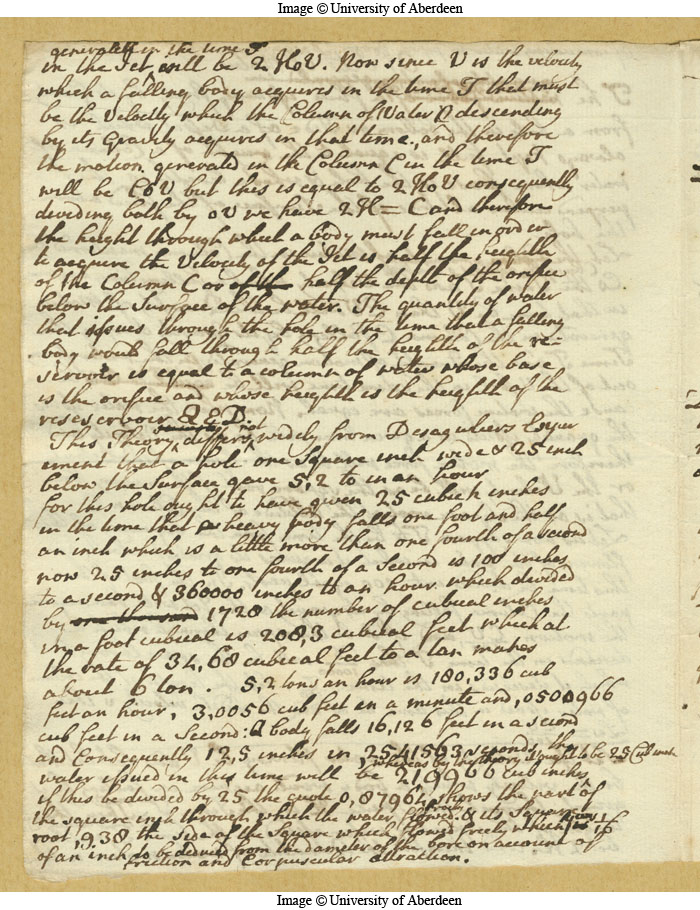 Image © University of Aberdeen
generated in the time T
in the Jet will be 2HoV. Now since V is the velocity
which a falling body acquires in the time T that must
be the Velocity which the Column of Water descending
by its Gravity acquires in that time, and therefore
the motion generated in the Column C in the time T
will be CoV but this is equal to 2HoV consequently
dividing both by oV we have 2H = C and therefore
the height through which a body must fall in order
to acquire the Velocity of the Jet is half the heighth
of the Column C or half the depth of the orifice
below the Surface of the water. The quantity of water
that issues through the hole in the time that a falling
body would fall through half the heighth of the re=
servoir is equal to a column of water whose base
is the orifice and whose heighth is the heighth of the
reseservoir Q E D
This Theory differs not widely from Desaguliers Exper
ement that a hole one Square inch wide & 25 inch
below the Surface gave 5,2 to in an hour
For this hole ought to have given 25 cubick inches
in the time that a heavy body falls one foot and half
an inch which is a little more than one fourth of a second
now 25 inches to one fourth of a Second is 100 inches
to a second & 360000 inches to an hour which divided
by one thousand 1728 the number of cubical inches
in a foot cubical is 208,3 cubical feet which at
the rate of 34,68 cubical feet to a tan makes
about 6 ton. 5,2 tons an hour is 180,336 cub
feet an hour, 3,0056 cub feet in a minute and ,0500966
cub feet in a Second: a body falls 16,126 feet in a second
and Consequently 12,5 inches in ,2541563 seconds, the
whereas by the theory it ought to be 25 Cub inch
water issued in this time will be 219966 cub inches
if this be divided by 25 the quote 0,87964 shows the part of
the square inch through which the water flowed freely & its Square
root ,938 the side of the Square which flowed freely which
1/16
of an inch to be deduced from the diameter of the bore on account of
friction and Corpuscular attraction.
Image © University of Aberdeen